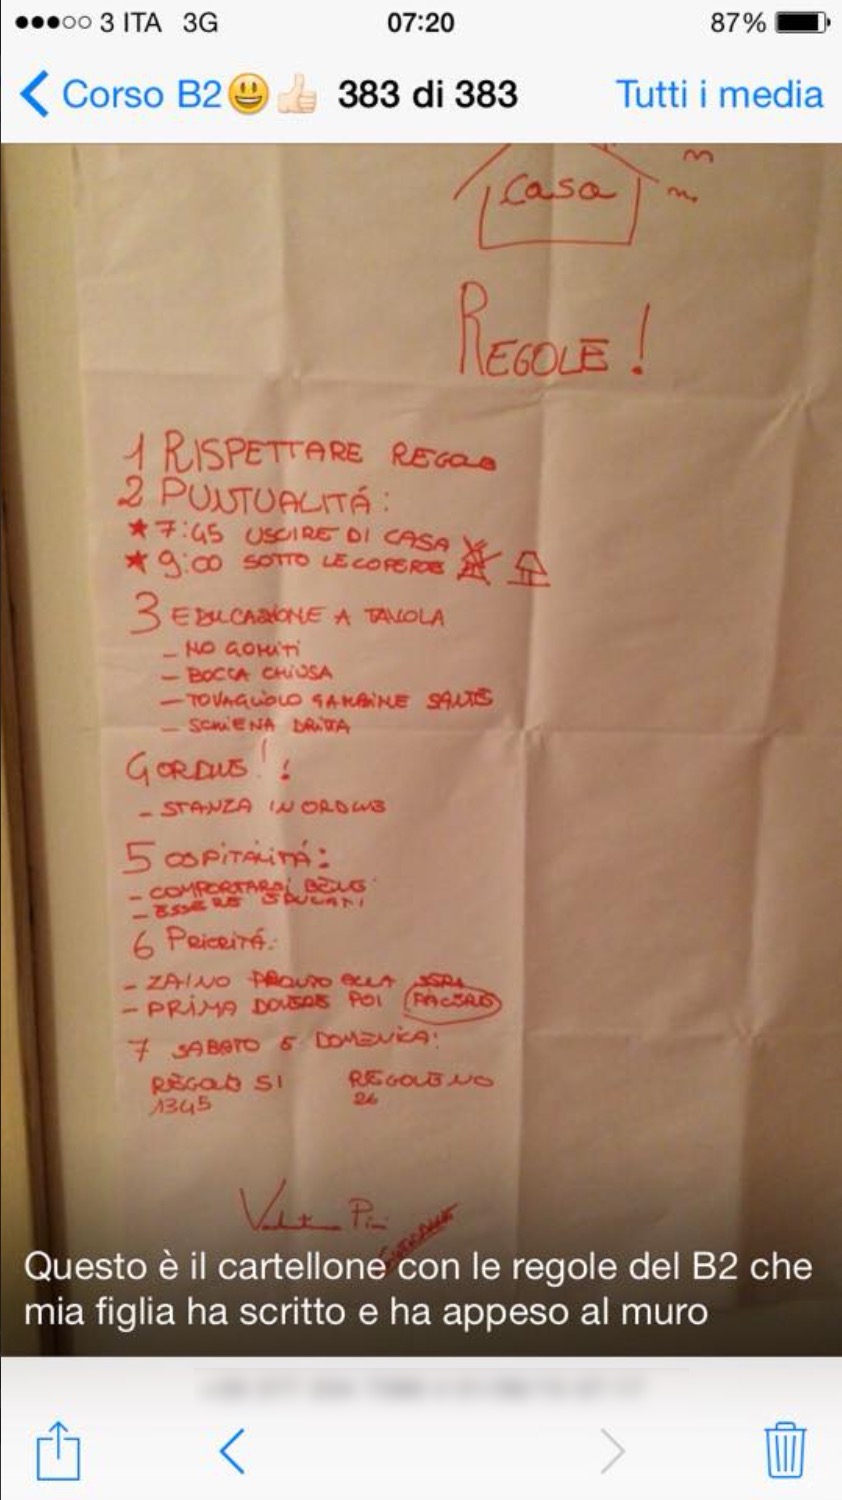 3 ITA 3G 07:20 87%
Corso B2😃👍🏻 383 di 383 Tutti i media
Casa
REGOLE!
1 RISPETTARE REGOLE
2 PUNTUALITÁ:
★ 7:45 USCIRE DI CASA
★ 9:00 SOTTO LE COPERTE
3 EDUCAZIONE A TAVOLA
- NO GOMITI
- BOCCA CHIUSA
- TOVAGLIOLO GAMBINE
- SCHIENA DRITTA
4 ORDINE!!
- STANZA IN ORDINE
5 OSPITALITÁ:
- COMPORTARSI BENE
- ESSERE EDUCATI
6 PRIORITÁ:
- ZAINO PRONTO ALLA SERA
- PRIMA DOVERE POI PIACERE
7 SABATO E DOMENICA:
REGOLE SI REGOLE NO
1345 26
Questo è il cartellone con le regole del B2 che
mia figlia ha scritto e ha appeso al muro